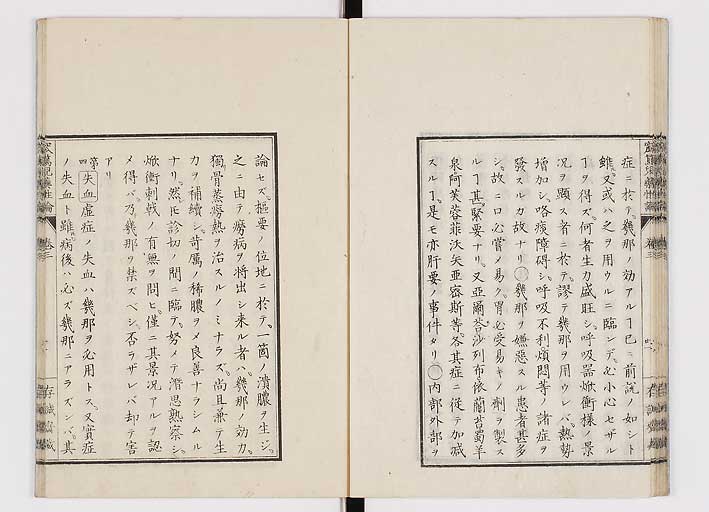 症ニ於テ。幾那ノ効アルヿ已ニ前説ノ如シト
雖。又或ハ之ヲ用ウルニ臨ンデ。必小心セザル
ヿヲ得ズ。何者生力盛旺シ。呼吸器焮衝様ノ景
況ヲ顕ス者ニ於テ。謬テ幾那ヲ用ウレバ。熱勢
増加シ。咯痰障碍シ。呼吸不利煩悶等ノ諸症ヲ
發スルカ故ナリ○幾那ヲ嫌惡スル患者甚多
シ。故ニ口ニ嘗メ易ク。胃ニ受易キノ劑ヲ製ス
ルヿ甚緊要ナリ。又亜爾荅沙列布依蘭苔蜀羊
泉阿芙蓉菲沃矢亜密斯等各其症ニ従テ加減
スルヿ。是モ亦肝要ノ事件タリ○内部外部ヲ
論セズ。樞要ノ位地ニ於テ。一箇ノ潰膿ヲ生ジ。
之ニ由テ癆病ヲ将出シ来ル者ハ。幾那ノ効力。
獨骨蒸癆熱ヲ治スルノミナラズ。尚且兼テ生
力ヲ補續シ。苛厲ノ稀膿ヲメ良善ナラシムル
ナリ。然圧診切ノ間ニ臨テ。努メテ潛思熟察シ。
焮衝刺戟ノ有無ヲ問ヒ。僅ニ其景況アルヲ認
メ得バ。乃幾那ヲ禁ズベシ。否ラザレバ却テ害
アリ
第四 失血 虚症ノ失血ハ幾那ヲ必用トス。又實症
ノ失血ト雖。病後ハ必ズ幾那ニアラズンバ。其
卷三